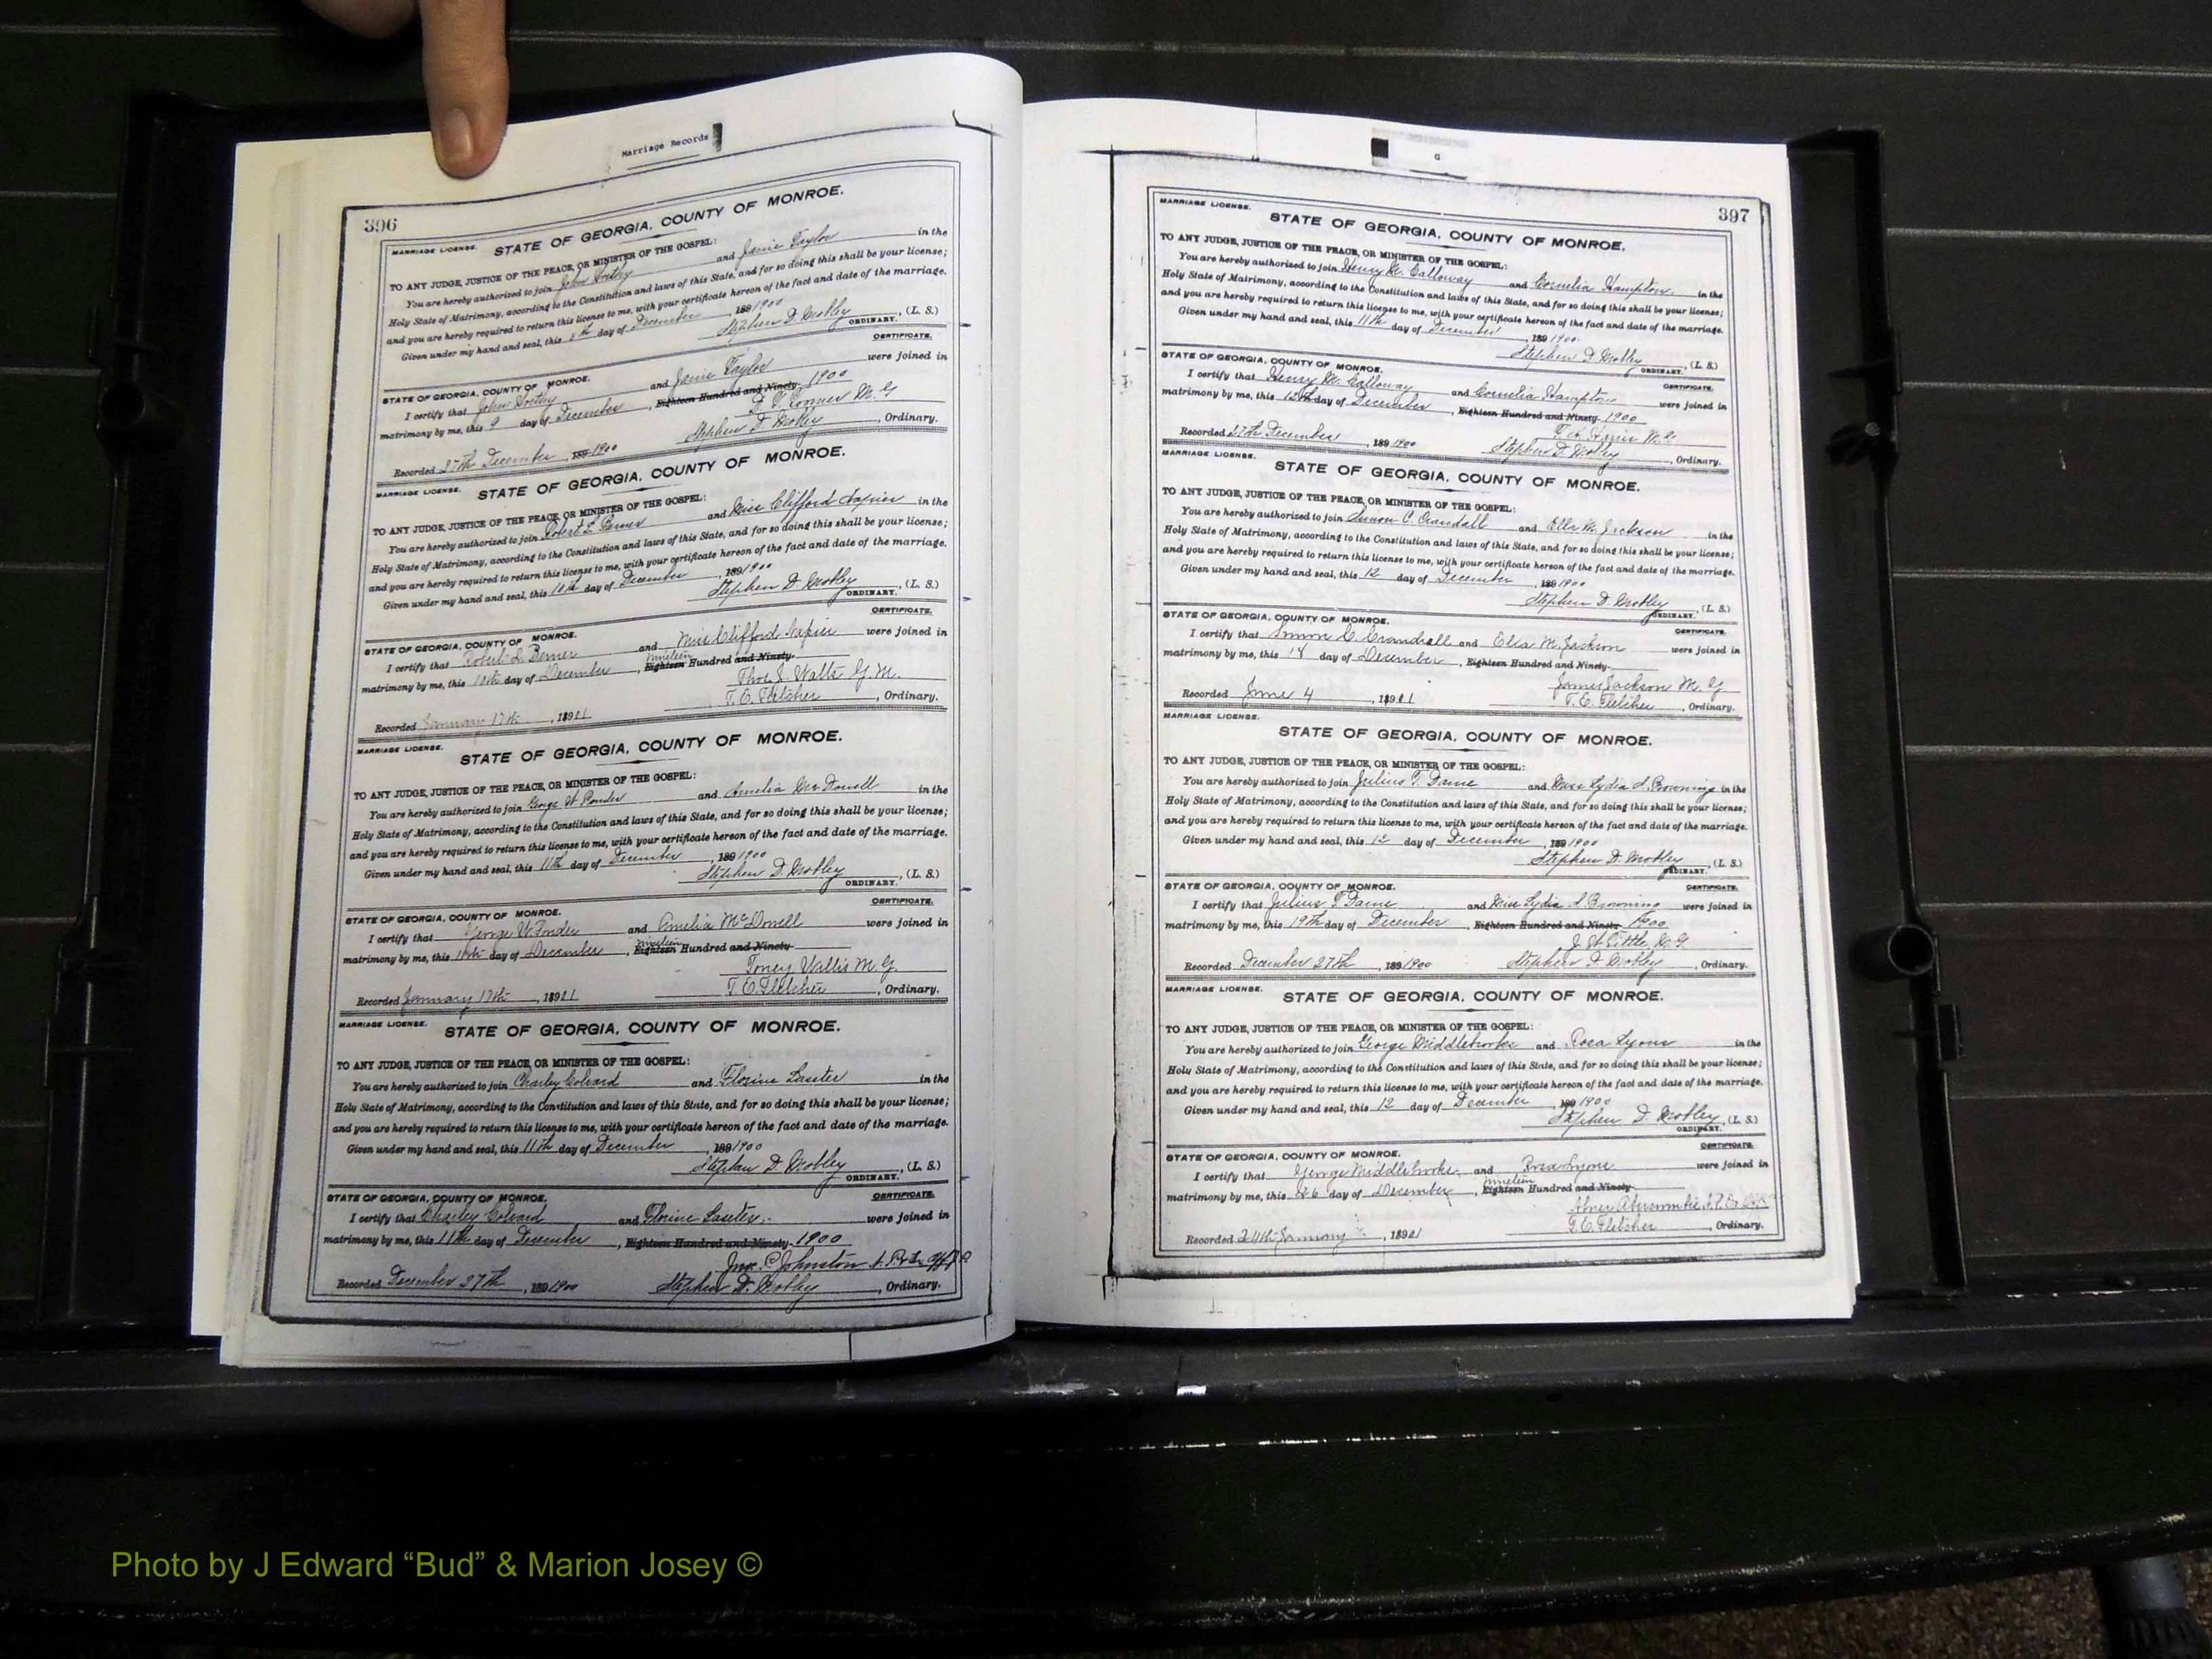 Marriage Records
396
MARRIAGE LICENSE. STATE OF GEORGIA, COUNTY OF MONROE.
TO ANY JUDGE, JUSTICE OF THE PEACE, OR MINISTER OF THE GOSPEL:
You are hereby authorized to join John and Janie Taylor in the
Holy State of Matrimony, according to the Constitution and laws of this State, and for so doing this shall be your license;
and you are hereby required to return this license to me, with your certificate hereon of the fact and date of the marriage.
Given under my hand and seal, this day of December, 189 1900
Stephen D. Mobley, (L. S.)
ORDINARY.
CERTIFICATE.
STATE OF GEORGIA, COUNTY OF MONROE.
I certify that John and Janie Taylor were joined in
matrimony by me, this 9 day of December, Eighteen Hundred and Ninety 1900
M. G
Recorded 27th December, 189 1900 Stephen D Mobley, Ordinary.
MARRIAGE LICENSE. STATE OF GEORGIA, COUNTY OF MONROE.
TO ANY JUDGE, JUSTICE OF THE PEACE, OR MINISTER OF THE GOSPEL:
You are hereby authorized to join Robert L. Berner and Miss Clifford Napier in the
Holy State of Matrimony, according to the Constitution and laws of this State, and for so doing this shall be your license;
and you are hereby required to return this license to me, with your certificate hereon of the fact and date of the marriage.
Given under my hand and seal, this 10th day of December, 189 1900
Stephen D. Mobley, (L. S.)
ORDINARY.
CERTIFICATE.
STATE OF GEORGIA, COUNTY OF MONROE.
I certify that Robert L. Berner and Miss Clifford Napier were joined in
matrimony by me, this day of December, Eighteen nineteen Hundred and Ninety
M.
Recorded January 17th, 1901 T. E. Fletcher, Ordinary.
MARRIAGE LICENSE.
STATE OF GEORGIA, COUNTY OF MONROE.
TO ANY JUDGE, JUSTICE OF THE PEACE, OR MINISTER OF THE GOSPEL:
You are hereby authorized to join George W Ponder and Amelia McDowell in the
Holy State of Matrimony, according to the Constitution and laws of this State, and for so doing this shall be your license;
and you are hereby required to return this license to me, with your certificate hereon of the fact and date of the marriage.
Given under my hand and seal, this 11th day of December, 189 1900
Stephen D. Mobley, (L. S.)
ORDINARY.
CERTIFICATE.
STATE OF GEORGIA, COUNTY OF MONROE.
I certify that George W. Ponder and Amelia McDowell were joined in
matrimony by me, this day of December, Eighteen nineteen Hundred and Ninety
Toney Willis M. G.
Recorded January 17th, 1901 T. E. Fletcher, Ordinary.
MARRIAGE LICENSE. STATE OF GEORGIA, COUNTY OF MONROE.
TO ANY JUDGE, JUSTICE OF THE PEACE, OR MINISTER OF THE GOSPEL:
You are hereby authorized to join Charley Colvard and Florine Laseter in the
Holy State of Matrimony, according to the Constitution and laws of this State, and for so doing this shall be your license;
and you are hereby required to return this license to me, with your certificate hereon of the fact and date of the marriage.
Given under my hand and seal, this 11th day of December, 189 1900
Stephen D. Mobley, (L. S.)
ORDINARY.
CERTIFICATE.
STATE OF GEORGIA, COUNTY OF MONROE.
I certify that Charley Colvard and Florine Laseter were joined in
matrimony by me, this 11th day of December, Eighteen Hundred and Ninety 1900
Jno. C Johnston
Recorded December 27th, 189 1900 Stephen D. Mobley, Ordinary.
397
MARRIAGE LICENSE. STATE OF GEORGIA, COUNTY OF MONROE.
TO ANY JUDGE, JUSTICE OF THE PEACE, OR MINISTER OF THE GOSPEL:
You are hereby authorized to join Henry M. Calloway and Cornelia Hampton in the
Holy State of Matrimony, according to the Constitution and laws of this State, and for so doing this shall be your license;
and you are hereby required to return this license to me, with your certificate hereon of the fact and date of the marriage.
Given under my hand and seal, this 11th day of December, 189 1900
Stephen D. Mobley, (L. S.)
ORDINARY.
CERTIFICATE.
STATE OF GEORGIA, COUNTY OF MONROE.
I certify that Henry M. Calloway and Cornelia Hampton were joined in
matrimony by me, this day of December, Eighteen Hundred and Ninety 1900
Recorded 27th December, 189 1900 Stephen D. Mobley, Ordinary.
MARRIAGE LICENSE.
STATE OF GEORGIA, COUNTY OF MONROE.
TO ANY JUDGE, JUSTICE OF THE PEACE, OR MINISTER OF THE GOSPEL:
You are hereby authorized to join Simon C. Crandall and Ella M. Jackson in the
Holy State of Matrimony, according to the Constitution and laws of this State, and for so doing this shall be your license;
and you are hereby required to return this license to me, with your certificate hereon of the fact and date of the marriage.
Given under my hand and seal, this 12 day of December, 189 1900
Stephen D. Mobley, (L. S.)
ORDINARY.
CERTIFICATE.
STATE OF GEORGIA, COUNTY OF MONROE.
I certify that Simon C. Crandall and Ella M. Jackson were joined in
matrimony by me, this day of December, Eighteen Hundred and Ninety
James Jackson M. G
Recorded June 4, 1901 T. E. Fletcher, Ordinary.
MARRIAGE LICENSE.
STATE OF GEORGIA, COUNTY OF MONROE.
TO ANY JUDGE, JUSTICE OF THE PEACE, OR MINISTER OF THE GOSPEL:
You are hereby authorized to join Julius T. Dame and Miss Lydia S. Browning in the
Holy State of Matrimony, according to the Constitution and laws of this State, and for so doing this shall be your license;
and you are hereby required to return this license to me, with your certificate hereon of the fact and date of the marriage.
Given under my hand and seal, this 12 day of December, 189 1900
Stephen D. Mobley, (L. S.)
ORDINARY.
CERTIFICATE.
STATE OF GEORGIA, COUNTY OF MONROE.
I certify that Julius T Dame and Miss Lydia S Browning were joined in
matrimony by me, this 19th day of December, Eighteen Hundred and Ninety 1900
Recorded December 27th, 189 1900 Stephen D. Mobley, Ordinary.
MARRIAGE LICENSE.
STATE OF GEORGIA, COUNTY OF MONROE.
TO ANY JUDGE, JUSTICE OF THE PEACE, OR MINISTER OF THE GOSPEL:
You are hereby authorized to join George Middlebrooks and Rosa Lyons in the
Holy State of Matrimony, according to the Constitution and laws of this State, and for so doing this shall be your license;
and you are hereby required to return this license to me, with your certificate hereon of the fact and date of the marriage.
Given under my hand and seal, this 12 day of December, 189 1900
Stephen D. Mobley, (L. S.)
ORDINARY.
CERTIFICATE.
STATE OF GEORGIA, COUNTY OF MONROE.
I certify that George Middlebrooks and Rosa Lyons were joined in
matrimony by me, this 26 day of December, Eighteen nineteen Hundred and Ninety
Abner Abercrombie
Recorded January, 1901 T. E. Fletcher, Ordinary.
Photo by J Edward “Bud” & Marion Josey ©